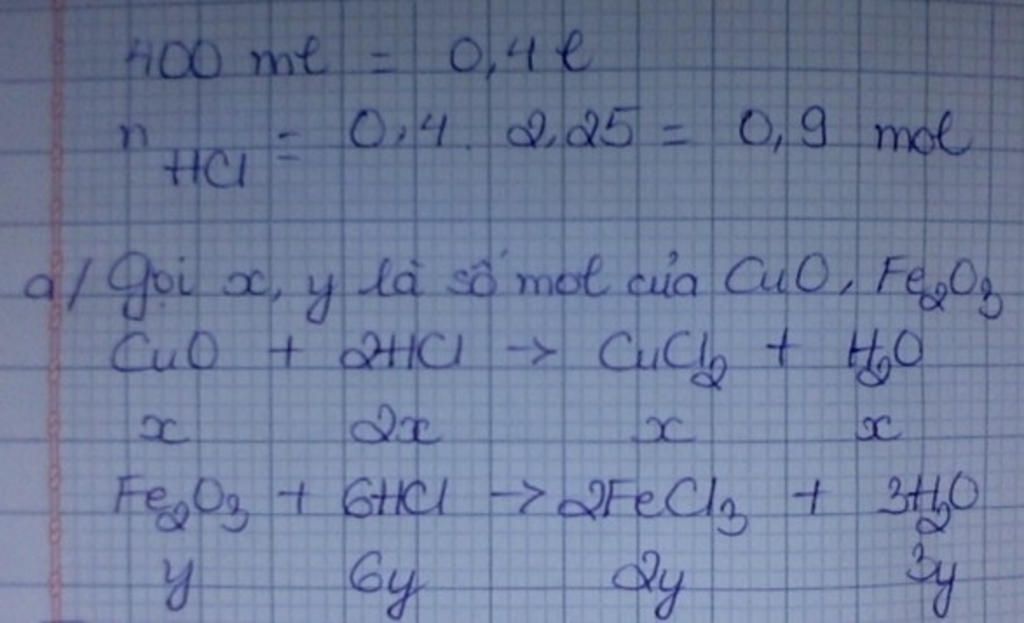 400 ml = 0,4 l
n HCl = 0,4. 2,25 = 0,9 mol
a/ Gọi x, y là số mol của CuO, Fe₂O₃
CuO + 2HCl → CuCl₂ + H₂O
x 2x x x
Fe₂O₃ + 6HCl → 2FeCl₃ + 3H₂O
y 6y 2y 3y